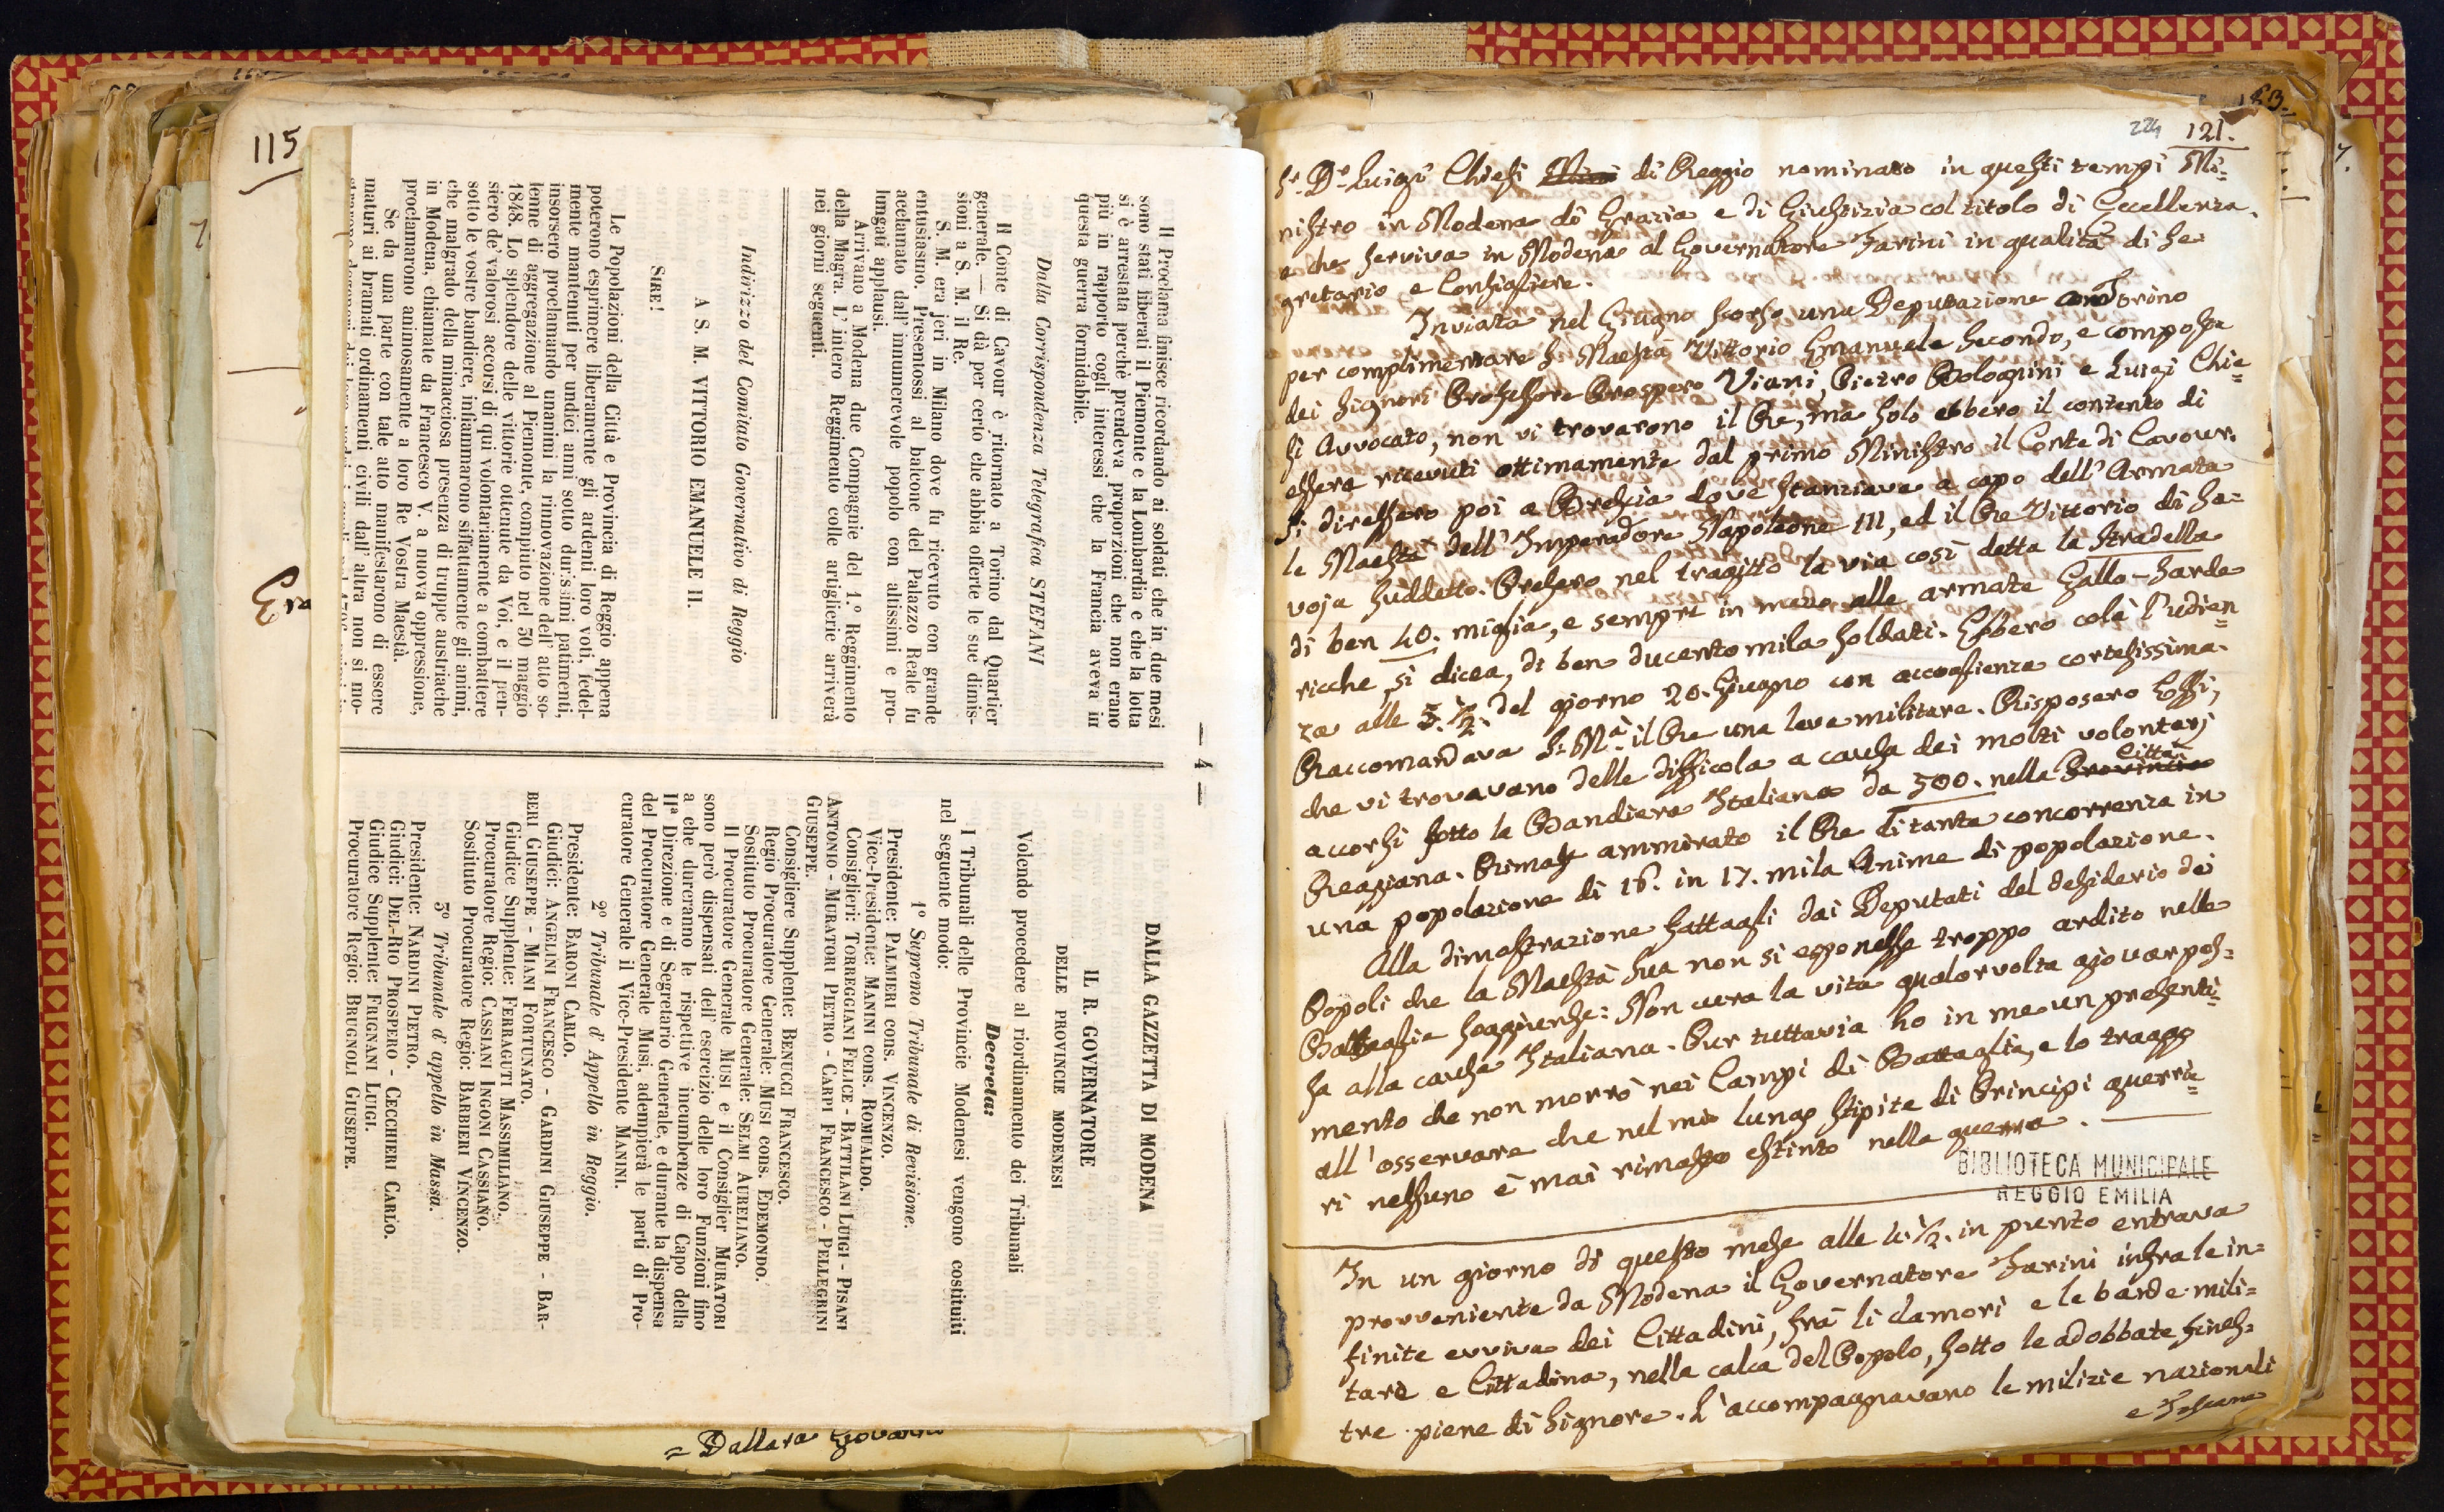 115
— 4 —
Il Proclama finisce ricordando ai soldati che in due mesi
sono stati liberati il Piemonte e la Lombardia e che la lotta
si è arrestata perchè prendeva proporzioni che non erano
più in rapporto cogli interessi che la Francia aveva in
questa guerra formidabile.
Dalla Corrispondenza Telegrafica STEFANI
Il Conte di Cavour è ritornato a Torino dal Quartier
generale. — Si dà per certo che abbia offerte le sue dimis-
sioni a S. M. il Re.
S. M. era jeri in Milano dove fu ricevuto con grande
entusiasmo. Presentossi al balcone del Palazzo Reale fu
acclamato dall' innumerevole popolo con altissimi e pro-
lungati applausi.
Arrivano a Modena due Compagnie del 1.º Reggimento
della Magra. L' intero Reggimento colle artiglierie arriverà
nei giorni seguenti.
Indirizzo del Comitato Governativo di Reggio
A S. M. VITTORIO EMANUELE II.
SIRE!
Le Popolazioni della Città e Provincia di Reggio appena
poterono esprimere liberamente gli ardenti loro voti, fedel-
mente mantenuti per undici anni sotto durissimi patimenti,
insorsero proclamando unanimi la rinnovazione dell' atto so-
lenne di aggregazione al Piemonte, compiuto nel 30 maggio
1848. Lo splendore delle vittorie ottenute da Voi, e il pen-
siero de' valorosi accorsi di qui volontariamente a combattere
sotto le vostre bandiere, infiammarono siffattamente gli animi,
che malgrado della minacciosa presenza di truppe austriache
in Modena, chiamate da Francesco V. a nuova oppressione,
proclamarono animosamente a loro Re Vostra Maestà.
Se da una parte con tale atto manifestarono di essere
maturi ai bramati ordinamenti civili dall' altra non si mo-
DALLA GAZZETTA DI MODENA
IL R. GOVERNATORE
DELLE PROVINCIE MODENESI
Volendo procedere al riordinamento dei Tribunali
Decreta:
I Tribunali delle Provincie Modenesi vengono costituiti
nel seguente modo:
1º Supremo Tribunale di Revisione.
Presidente: PALMIERI cons. VINCENZO.
Vice-Presidente: MANINI cons. ROMUALDO.
Consiglieri: TORREGGIANI FELICE - BATTILANI LUIGI - PISANI
ANTONIO - MURATORI PIETRO - CARPI FRANCESCO - PELLEGRINI
GIUSEPPE.
Consigliere Supplente: BENUCCI FRANCESCO.
Regio Procuratore Generale: MUSI cons. EDEMONDO.
Sostituto Procuratore Generale: SELMI AURELIANO.
Il Procuratore Generale MUSI e il Consiglier MURATORI
sono però dispensati dell' esercizio delle loro Funzioni fino
a che dureranno le rispettive incumbenze di Capo della
IIª Direzione e di Segretario Generale, e durante la dispensa
del Procuratore Generale Musi, adempierà le parti di Pro-
curatore Generale il Vice-Presidente MANINI.
2º Tribunale d' Appello in Reggio.
Presidente: BARONI CARLO.
Giudici: ANGELINI FRANCESCO - GARDINI GIUSEPPE - BAR-
BERI GIUSEPPE - MIANI FORTUNATO.
Giudice Supplente: FERRAGUTI MASSIMILIANO.
Procuratore Regio: CASSIANI INGONI CASSIANO.
Sostituto Procuratore Regio: BARBIERI VINCENZO.
3º Tribunale d' appello in Massa.
Presidente: NARDINI PIETRO.
Giudici: DEL-RIO PROSPERO - CECCHIERI CARLO.
Giudice Supplente: FRIGNANI LUIGI.
Procuratore Regio: BRUGNOLI GIUSEPPE.
Era
= Dallara Giovanni
224 121.
Sr. Dr. Luigi Chiesi di Reggio nominato in questi tempi Mi=
nistro in Modena di Grazia e di Giustizia col titolo di Eccellenza.
a che serviva in Modena al Governatore Farini in qualità di Se=
gretario e Consigliere.
Inviata nel Giugno scorso una Deputazione Torino
per complimentare S. Maestà Vittorio Emanuele Secondo, e composta
dei Signori Professore Prospero Viani, Pietro Bolognini e Luigi Chie=
si Avvocato, non vi trovarono il Re, ma solo ebbero il contento di
essere ricevuti ottimamente dal primo Ministro il Conte di Cavour.
Si diressero poi a Brescia dove stanziava a capo dell' Armata
le Maestà dell' Imperadore Napoleone III, ed il Re Vittorio di Sa=
voja suddetto. Presero nel tragitto la via così detta la Stradella
di ben 40. miglia, e sempre in mezzo alle armate Gallo-Sarde
ricche, si dicea, di ben ducento mila soldati. Ebbero colà l' udien=
za alle 5. 1/2. del giorno 20. Giugno con accoglienza cortesissima.
Raccomandava S. Mà. il Re una leva militare. Risposero Essi,
che vi trovavano delle difficola a causa dei molti volontarj
accorsi sotto la Bandiera Italiana da 500. nella Provincia Città
Reggiana. Rimase ammirato il Re di tanta concorrenza in
una popolazione di 16. in 17. mila Anime di popolazione.
Alla dimostrazione fattagli dai Deputati del desiderio dei
Popoli che la Maestà Sua non si esponesse troppo ardito nelle
Battaglie soggiunse: Non cura la vita qualorvolta giovar pos=
sa alla causa Italiana. Pur tuttavia ho in me un presenti=
mento che non morrò nei Campi di Battaglia, e lo traggo
all' osservare che nel mio lungo stipite di Principi guerrie=
ri nessuno è mai rimasto estinto nella guerra.
BIBLIOTECA MUNICIPALE
REGGIO EMILIA
In un giorno di questo mese alle 4. 1/2. in punto entrava
provveniente da Modena il Governatore Farini infra le in=
finite evviva dei Cittadini, frà li clamori e le bande mili=
tare e Cittadina, nella calca del Popolo, sotto le adobbate fines=
tre piene di Signore. L' accompagnavano le milizie nazionali
e Toscane